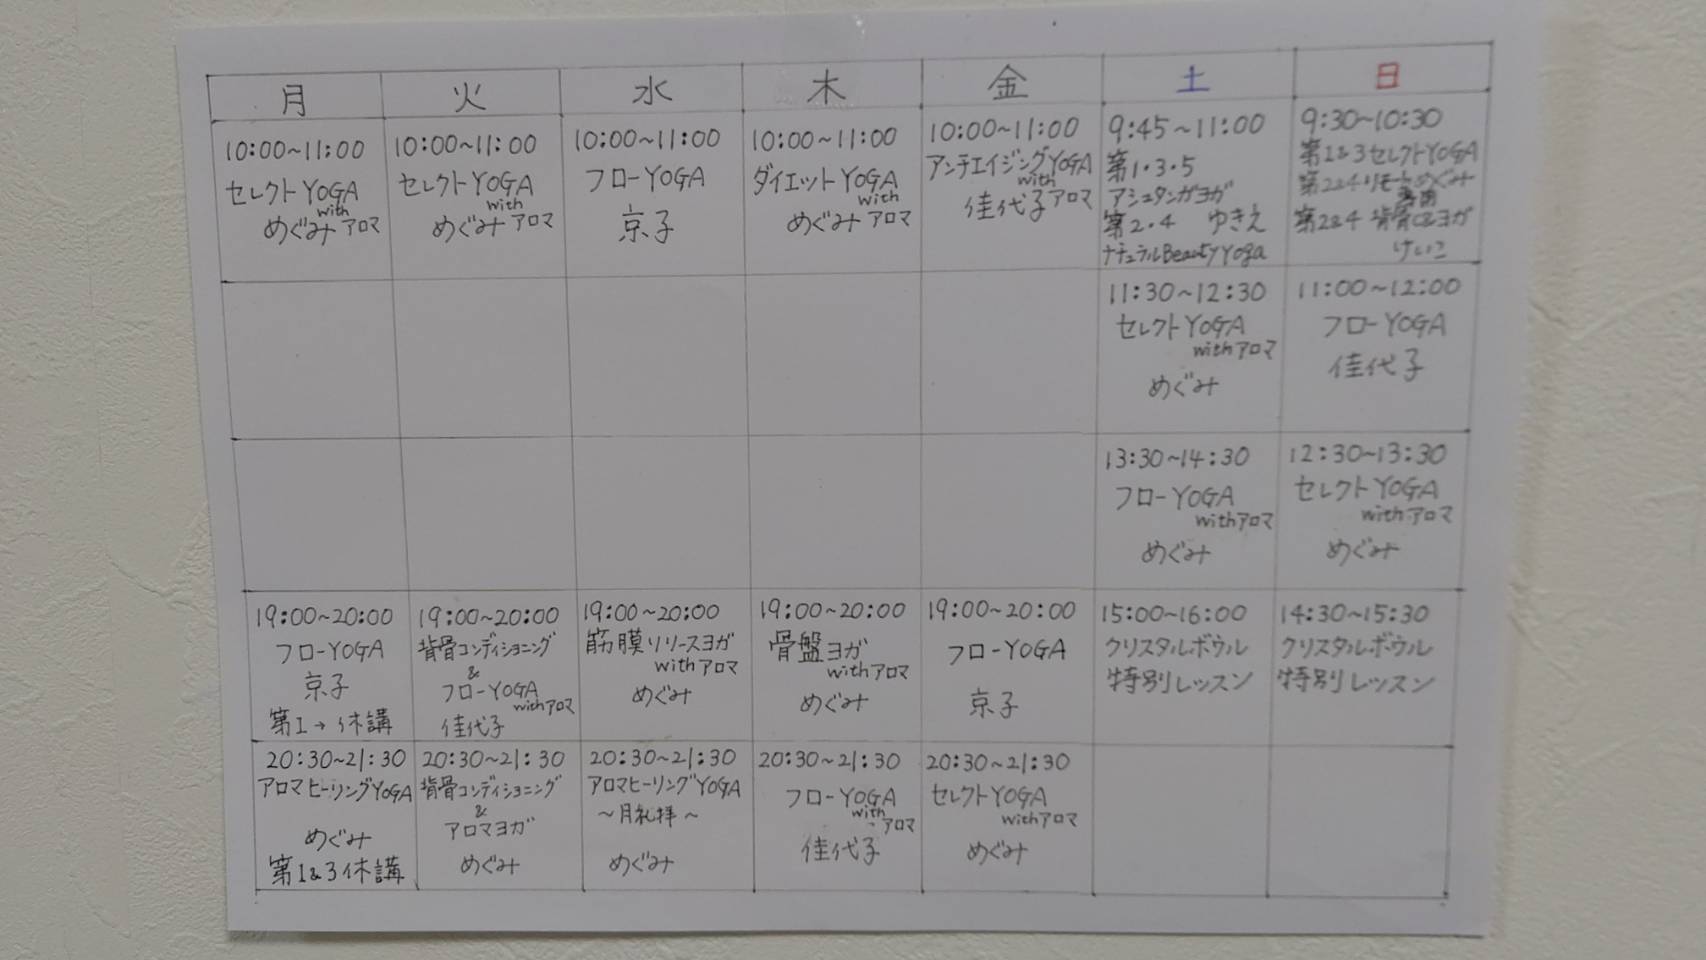 月
火
水
木
金
土
日
10:00~11:00
セレクトYOGA
with
めぐみ アロマ
10:00~11:00
セレクトYOGA
with
めぐみ アロマ
10:00~11:00
フローYOGA
京子
10:00~11:00
ダイエットYOGA
with
めぐみ アロマ
10:00~11:00
アンチエイジングYOGA
with
佳代子 アロマ
9:45~11:00
第1・3・5
アシュタンガヨガ
第2・4 ゆきえ
ナチュラルBeautyYoga
9:30~10:30
第1&3セレクトYOGA
第2&4 めぐみ
第2&4 背骨 ヨガ
けいこ
11:30~12:30
セレクトYOGA
withアロマ
めぐみ
11:00~12:00
フローYOGA
佳代子
13:30~14:30
フローYOGA
withアロマ
めぐみ
12:30~13:30
セレクトYOGA
withアロマ
めぐみ
19:00~20:00
フローYOGA
京子
第1→休講
19:00~20:00
背骨コンディショニング
&
フローYOGA
withアロマ
佳代子
19:00~20:00
筋膜リリースヨガ
withアロマ
めぐみ
19:00~20:00
骨盤ヨガ
withアロマ
めぐみ
19:00~20:00
フローYOGA
京子
15:00~16:00
クリスタルボウル
特別レッスン
14:30~15:30
クリスタルボウル
特別レッスン
20:30~21:30
アロマヒーリングYOGA
めぐみ
第1&3休講
20:30~21:30
背骨コンディショニング
&
アロマヨガ
めぐみ
20:30~21:30
アロマヒーリングYOGA
~月礼拝~
めぐみ
20:30~21:30
フローYOGA
with
アロマ
佳代子
20:30~21:30
セレクトYOGA
withアロマ
めぐみ